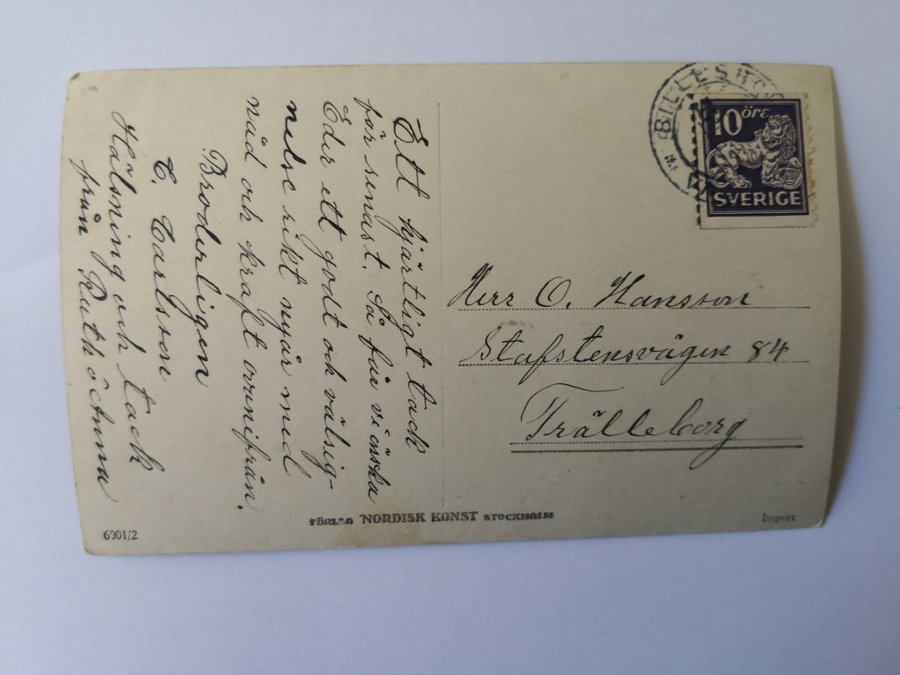 Ett hjärtligt tack
för senast. Så får vi önska
Eder ett godt och välsig-
nelse rikt nyår med
nåd och kraft ovanifrån.
Broderligen
C. Carlsson
Hälsning och tack
från Ruth o Emma
BILLESH
10 öre
SVERIGE
Herr O. Hansson
Stafstensvägen 84
Trälleborg
FÖRLAG NORDISK KONST STOCKHOLM
6001/2
Import